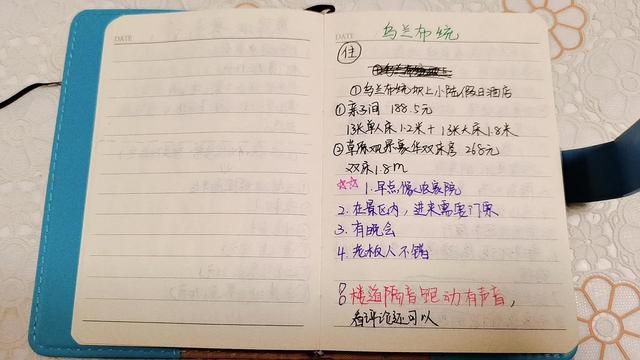 DATE
DATE
乌兰布统
住
①乌兰布统坝上小陆假日酒店
①亲子间 188.5元
1张单人床1.2米+1张大床1.8米
②草原观景豪华双床房 268元
双床1.8m
☆☆ 1.早点像农家院
2.在景区内，进来需要门票
3.有晚会
4.老板人不错
楼道隔音 跑动有声音，
看评论还可以